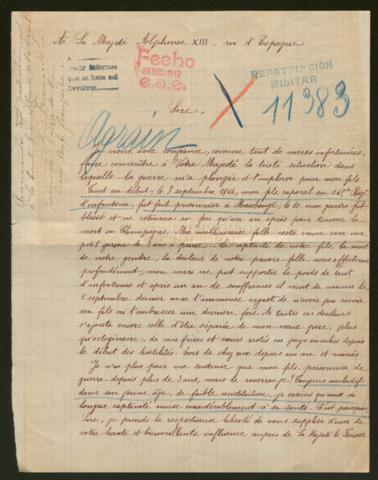 A Sa Majesté Alphonse XIII, roi d'Espagne
A
Pedir informes
que se hans sol
Devolver
Fecho
28 DIC. 1917
e.a.e.
REPATRIACIÓN
MILITAR
X 11383
Sire,
Agrain
confiance, comme tant de mères infortunées
faire connaître à Votre Majesté la triste situation dans
laquelle la guerre m'a plongée et l'implorer pour mon fils
Tout au début, le 8 septembre 1914, mon fils, caporal au 145me Régt
d'infanterie, fut fait prisonnier à Maubeuge, le 10, mon gendre fut
blessé et ne retourna au feu qu'un an après pour trouver la
mort en Champagne. Ma malheureuse fille reste veuve avec un
petit garçon de 3 ans à peine. La captivité de notre fils, la mort
de notre gendre, la douleur de notre pauvre fille nous affectèrent
profondément, mon mari ne put supporter le poids de tant
d'infortunes et après un an de souffrances il vient de mourir le
5 septembre dernier avec l'immense regret de n'avoir pu revoir
son fils ni l'embrasser une dernière fois. A toutes ces douleurs
s'ajoute encore celle d'être séparée de mon vieux père, plus
qu'octogénaire, de mes frères et sœurs restés en pays envahis depuis
le début des hostilités, hors de chez eux depuis un an et ruinés.
Je n'ai plus pour me soutenir que mon fils, prisonnier de
guerre depuis plus de 3 ans, mais le reverrai-je? Toujours maladif
dans son jeune âge, de faible constitution, je crains qu'une si
longue captivité nuise considérablement à sa santé. C'est pourquoi,
Sire, je prends la respectueuse liberté de vous supplier d'user de
votre haute et bienveillante influence auprès de Sa Majesté le Kaiser